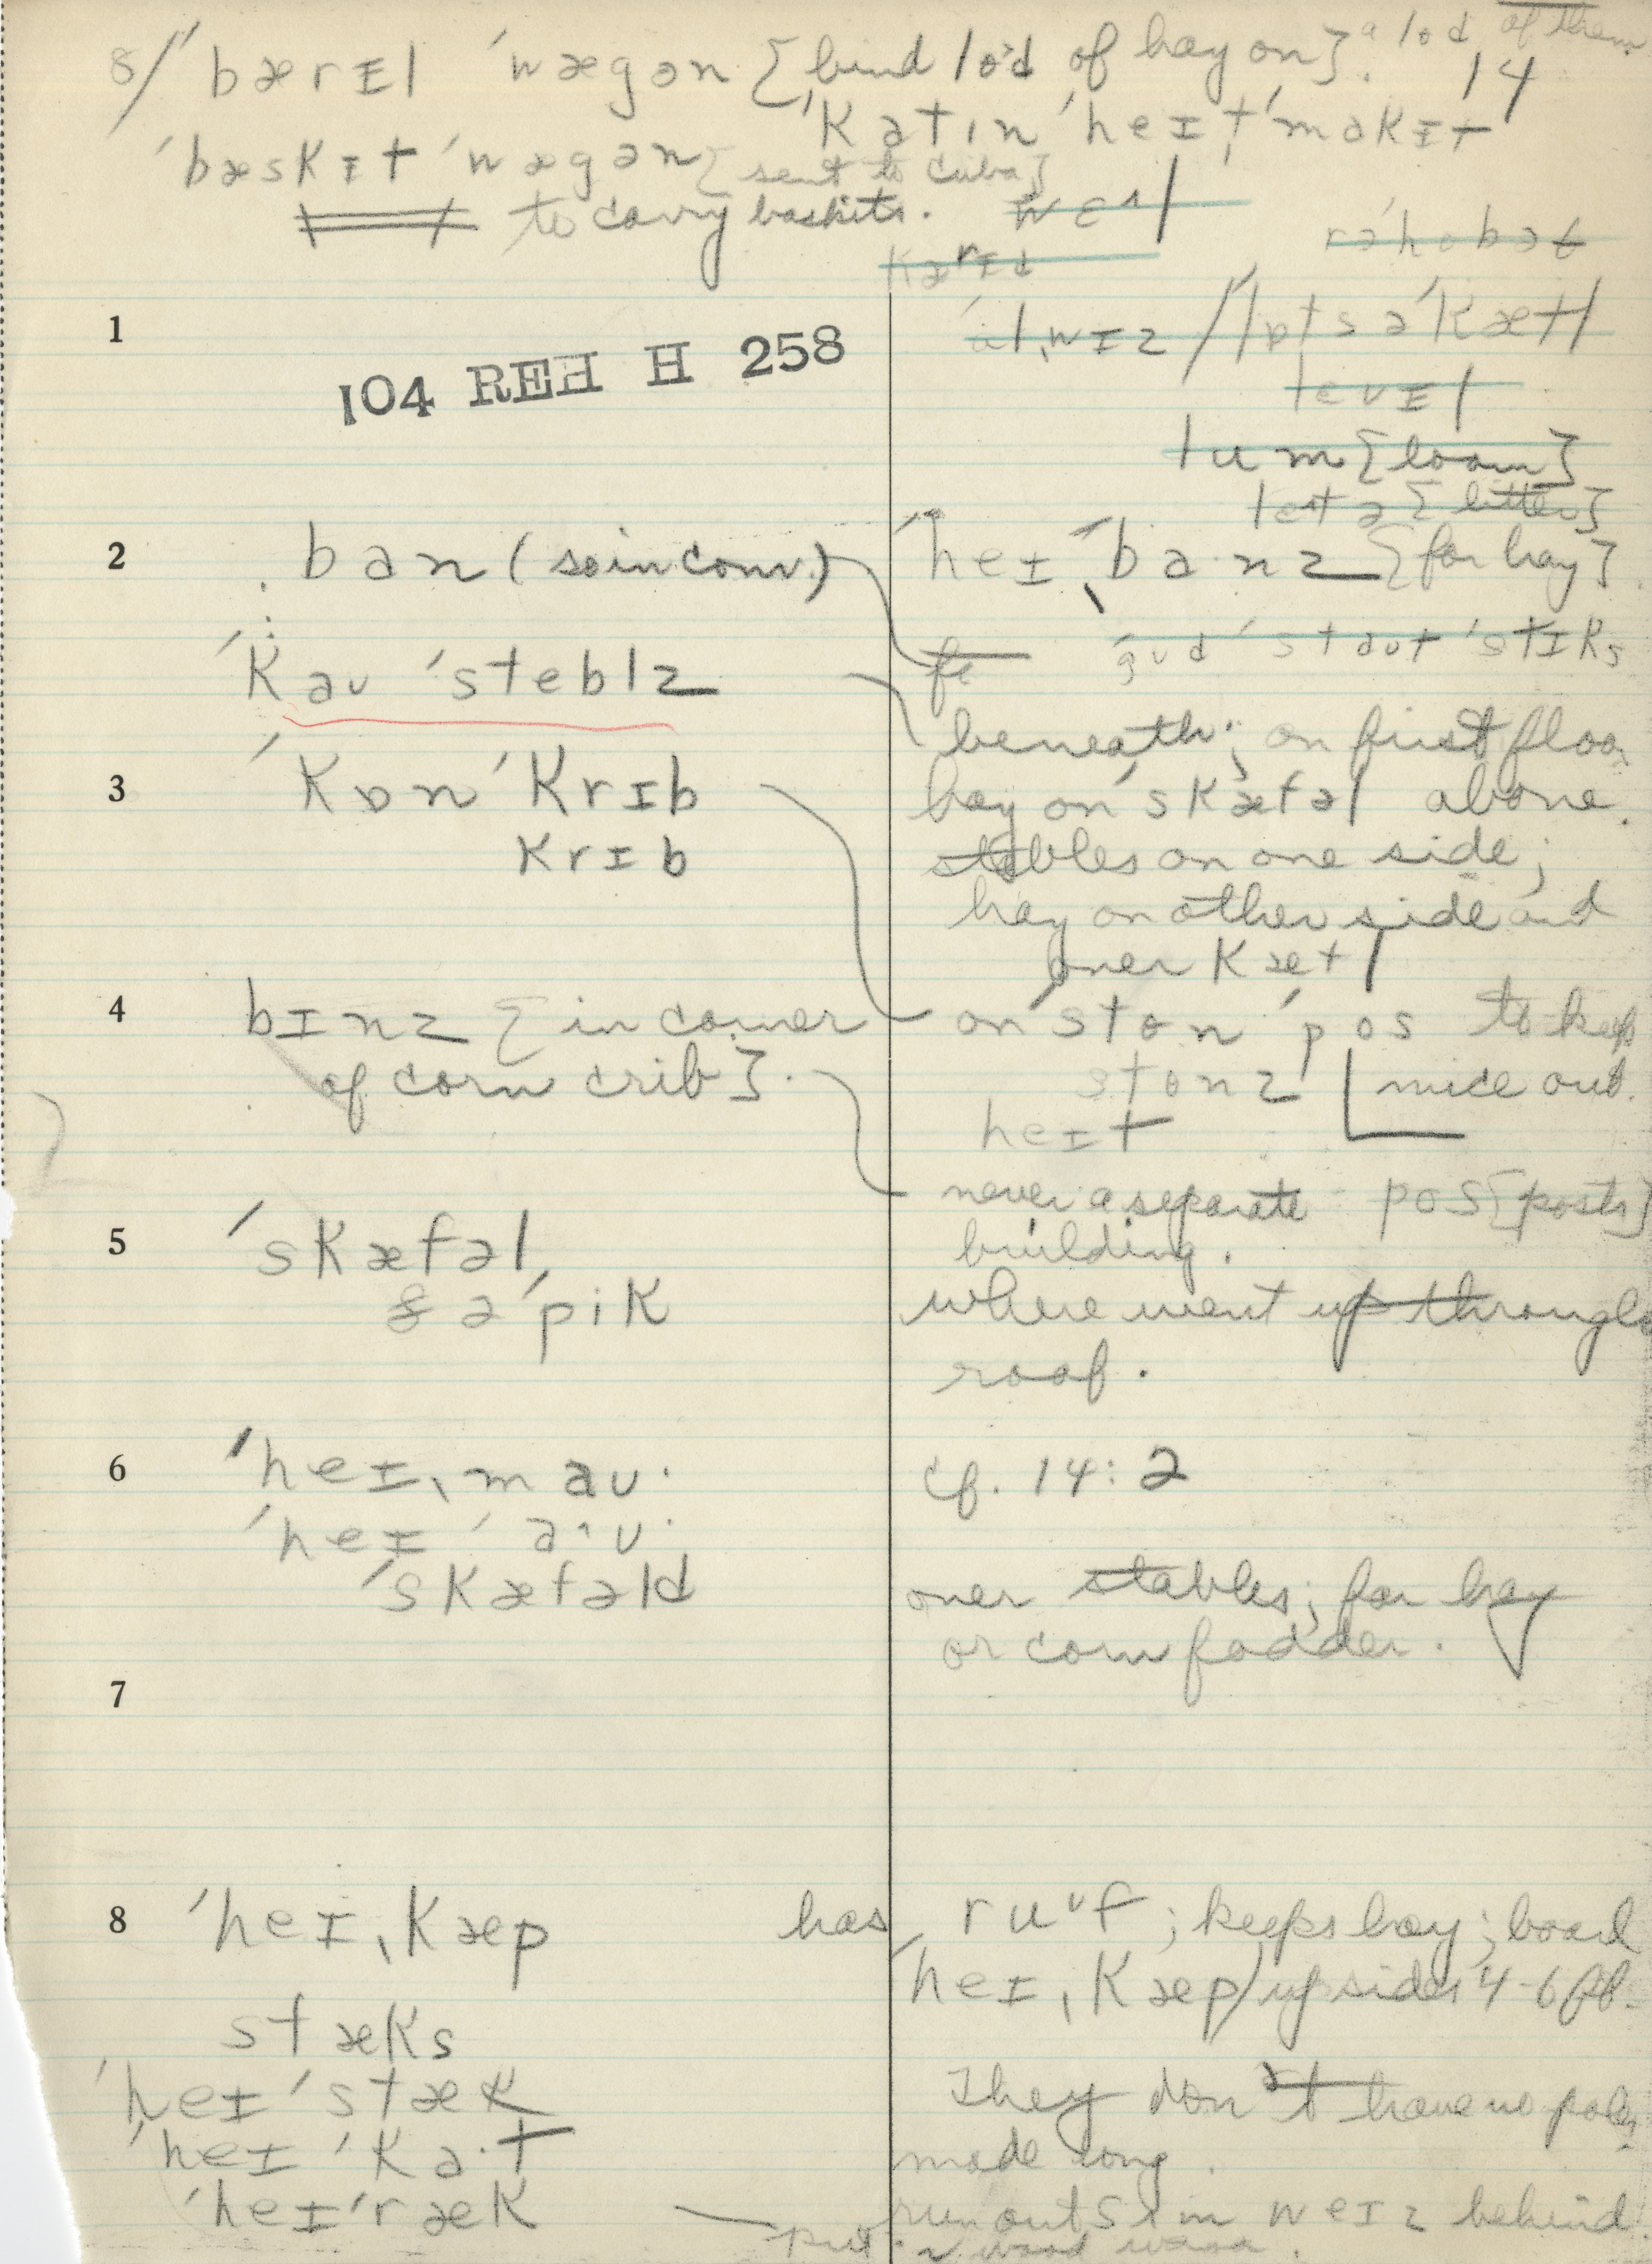 8/ ˈbærɪl ˈwægən {bind lod of hay on}. a lod of them
14
ˈkətɪn ˈheɪ, ˈmɑkɪt
ˈbæskɪt ˈwægən {sent to Cuba}
to carry baskets. wɛʌl
rəˈhobət
kærɪd
1
104 REH H 258
ˈɑlˌwɪz / ˈlɒts ə ˈkætl
levɪl
lum {loom}
{litter}
2 ban (so in conv.) ˈheɪˌba·nz {for hay}.
ˈgud ˈstaut ˈstɪks
ˈkau ˈsteblz
beneath; on first floor
3 ˈkɒn ˈkrɪb
hay on ˈskæfəl above.
krɪb
stables on one side;
hay on other side and
over kætl
4 bɪnz {in corner
of corn crib}.
on ˈston ˈpos to keep
stonz mice out.
heɪt
never a separate pos {posts}
building.
5 ˈskæfəl
ə ˈpik
where went up through
roof.
6 ˈheɪˌmau· cf. 14:2
ˈheɪ ˈa·u·
ˈskæfəld over stables; for hay
or corn fodder.
7
8 ˈheɪˌkæp has ruᵘf; keeps hay; board
ˈheɪˌkæp / up sides 4-6 ft.
stæks
ˈheɪ ˈstæk They don't have no poles
ˈheɪ ˈkɑ·t made long.
ˈheɪ ˈræk run out in weɪz behind
put